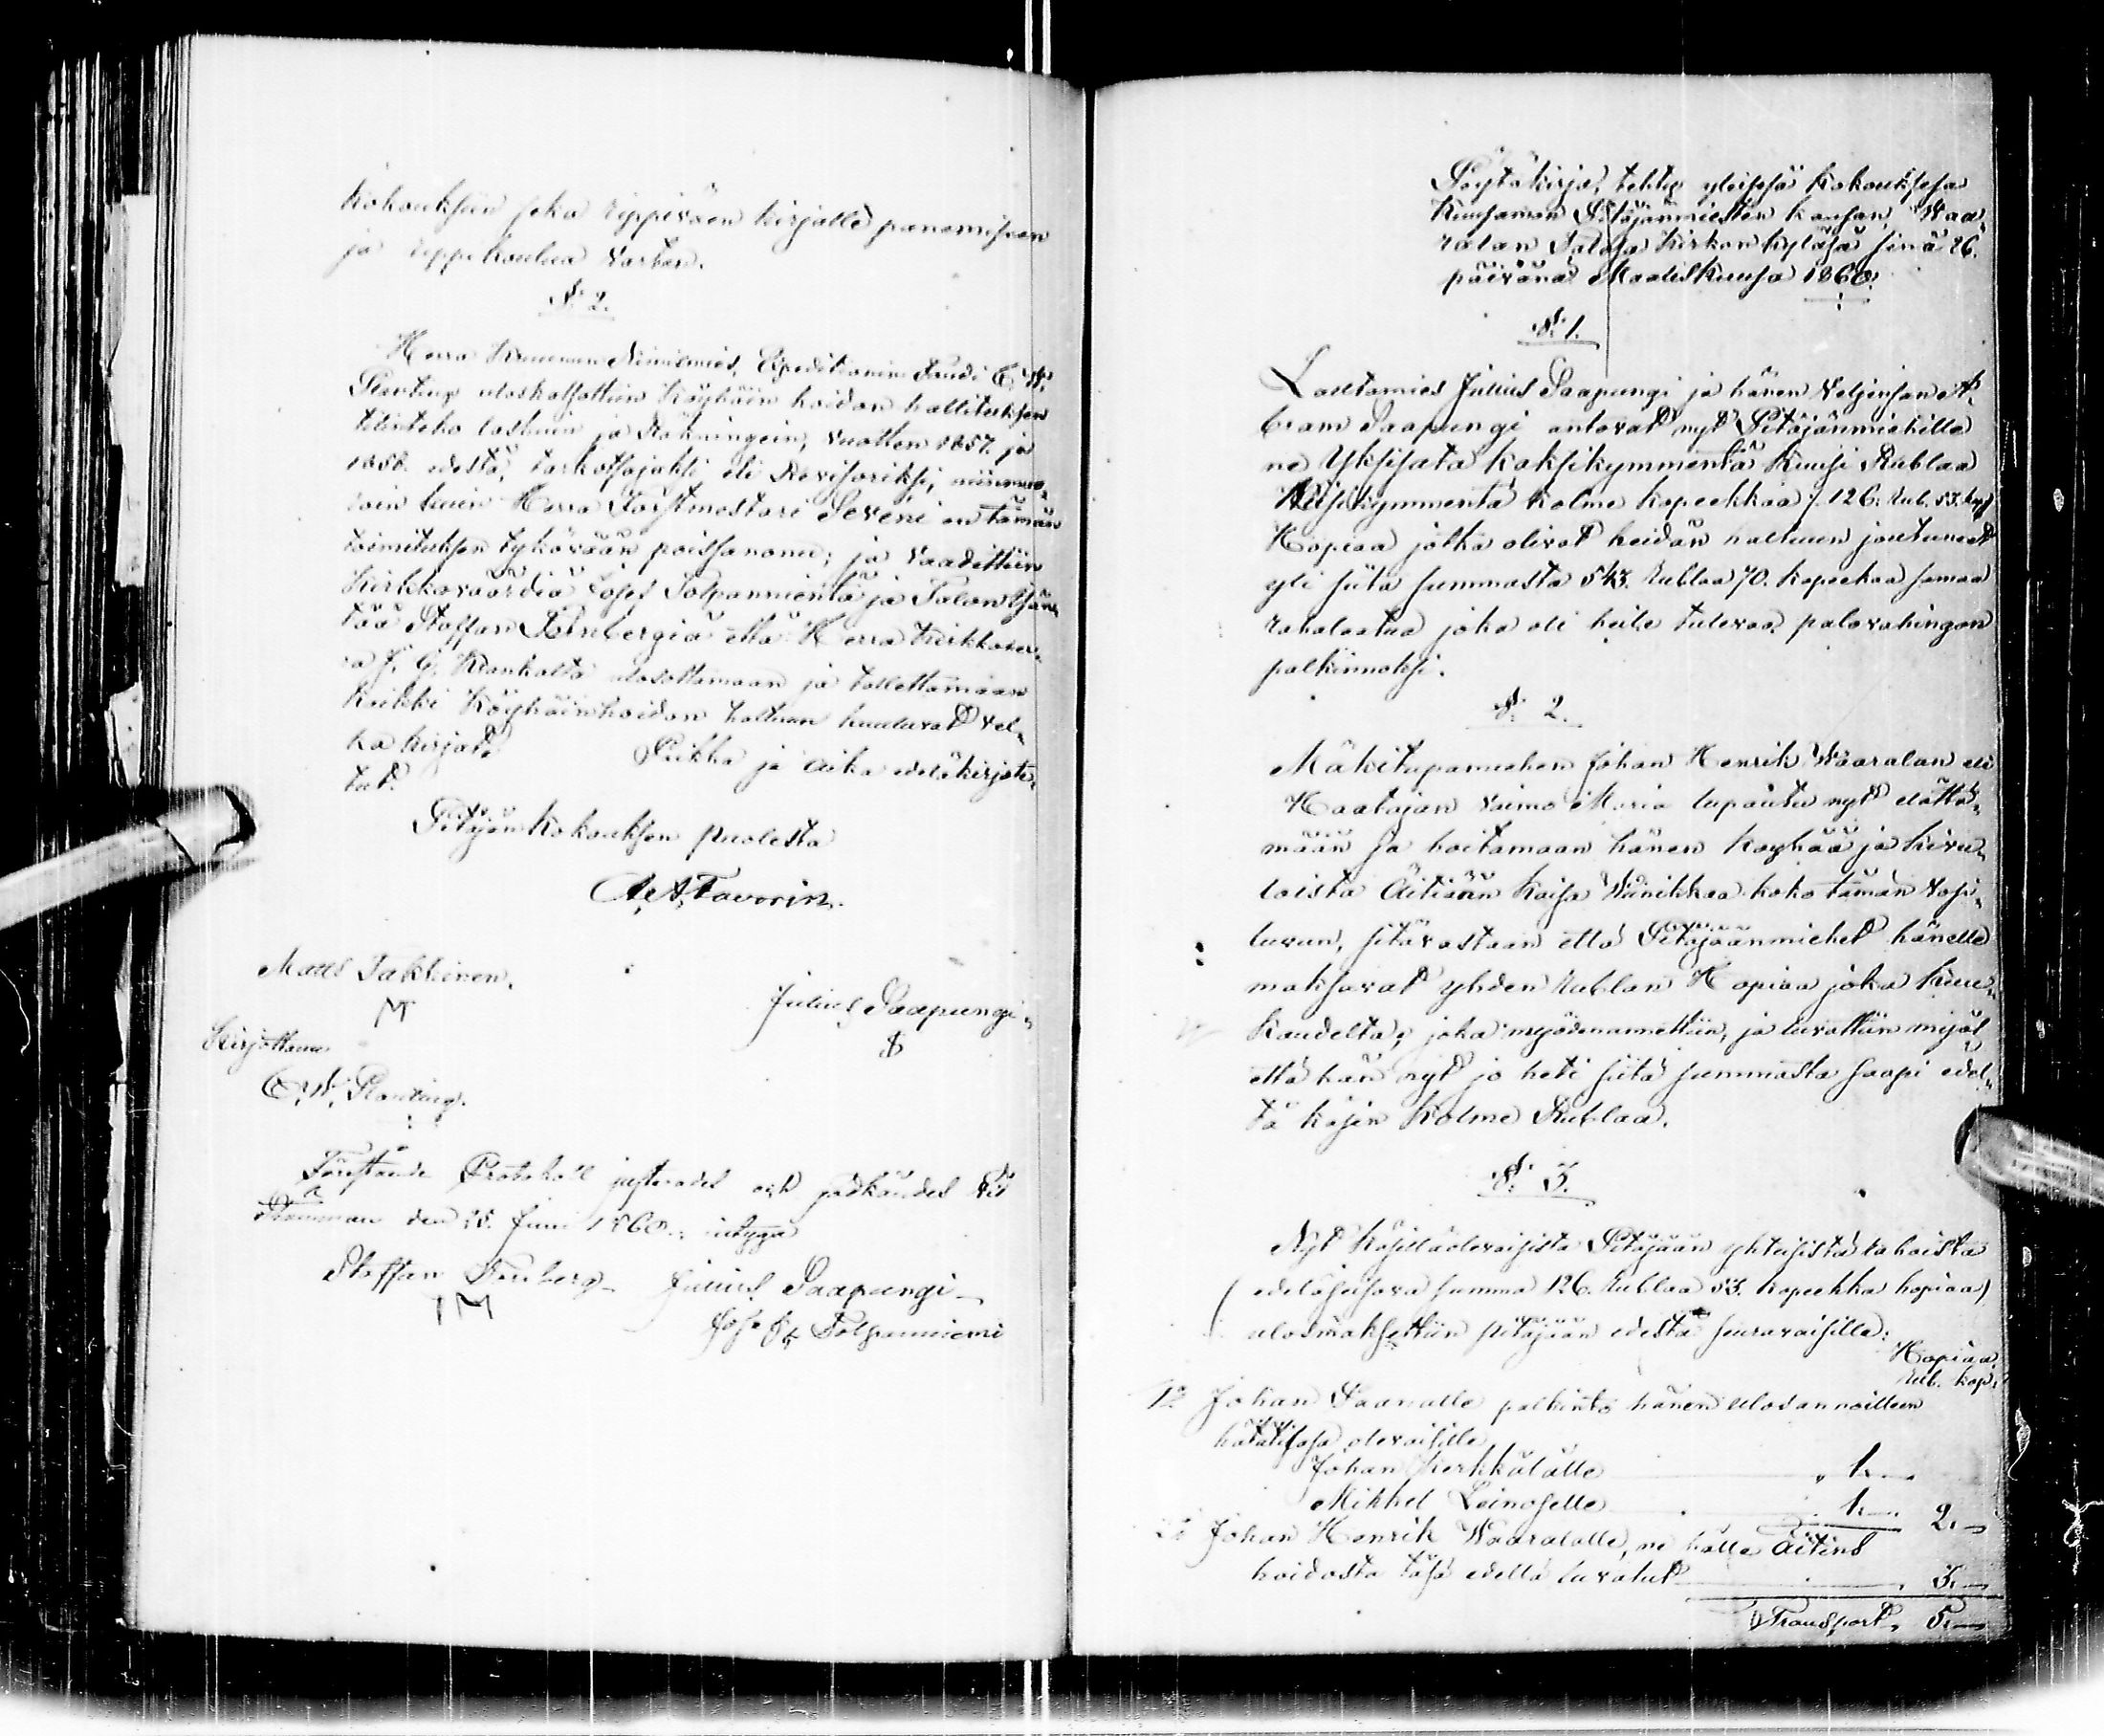 Kokouksiin joka rippiväen kirjalle panemiseen
ja rippikoulua varten.
§ 2.
Herra Kruunun Nimismies, Expeditionin Fandi C. W.
Planting uloskatsottiin Köyhäin hoidon hallituksen
tilinteko laskuin ja Räkningein, vuotten 1857. ja
1858. edestä, tarkotsojaksi eli Revisoriksi, niinmuo-
toin kuin Herra Forstmestari Seveni on tämän
toimituksen tykövään poissanonu; ja vaadittiin
Kirkkovaärdiä Josef Tolpanniemiä ja Talon Isän-
tää Staffan Tenbergiä että Herra Kirkkoher-
ra J. G. ulosottamaan ja tallettamaan
kaikki Köyhäinhoidon haltuun kuuluvat vel-
ka kirjat. Paikka ja aika edeläkirjote-
tut.
Pitäjän Kokouksen puolesta
A. A. Favorin.
Matts Takkinen.
M
Julius Saapungi
Kirjottanu
C. W. Planting.
Förestående Protokoll justerades och godkändes vid
Stämman den 25. Juni 1860.; intyga
Staffan Tenberg Julius Saapungi
Josef Tolpanniemi
Pöytäkirja, tehty yleisesä Kokouksesa
Kuusamon Pitäjänmiesten kansan, Waa-
ralan Talosa Kirkon kyläsä sinä 26.
päivänä Maaliskuusa 1860.
§ 1.
Lautamies Julius Saapungi ja hänen Veljensan A-
bram Saapungi antovat nyt Pitäjänmiehille
ne Yksisata kaksikymmentä kuusi Rublaa
Viisikymmentä kolme kopeekkaa /. 126. Rub. 53. kop/
Hopiaa jotka olivat heidän haltuun joutuneet
yli siitä summasta 543. Rublaa 70. kopeekaa samaa
rahalastua joka oli heile tulevaa palovahingon
palkinnoksi.
§ 2.
Mäkitupamiehen Johan Henrik Waaralan eli
Haatajan vaimo Maria lupautu nyt elättä-
mään ja hoitamaan hänen köyhää ja kivu-
loista Äitiään Kaisa Winikkaa koko tämän vosi-
luvun, sitävastaan että Pitäjäänmiehet hänelle
maksavat yhden Rublan Hopiaa joka kuu-
kaudelta; joka myödennettiin, ja luvattiin myöt
että hän nyt jo heti siitä summasta saapi edel-
tä käsin kolme Rublaa.
§ 3.
Nyt käsilläolevaisista Pitäjään yhteisistä rahoista
(edeläseisova summa 126. Rublaa 53. kopeekka hopiaa)
ulosmaksettiin pitäjään edestä seuravaisille:
Hopiaa
Rub. kop.
1º Johan Saaralle palkinto hänen ulosannoilleen
hätätilasa olevaisille
Johan Kerkkälälle 1. —
Mikkel Leinoselle 1. — 2. —
2º Johan Henrik Waaralalle, ne hälle Äitins
hoidosta täsä edellä luvatut 3. —
Transport, 5. —